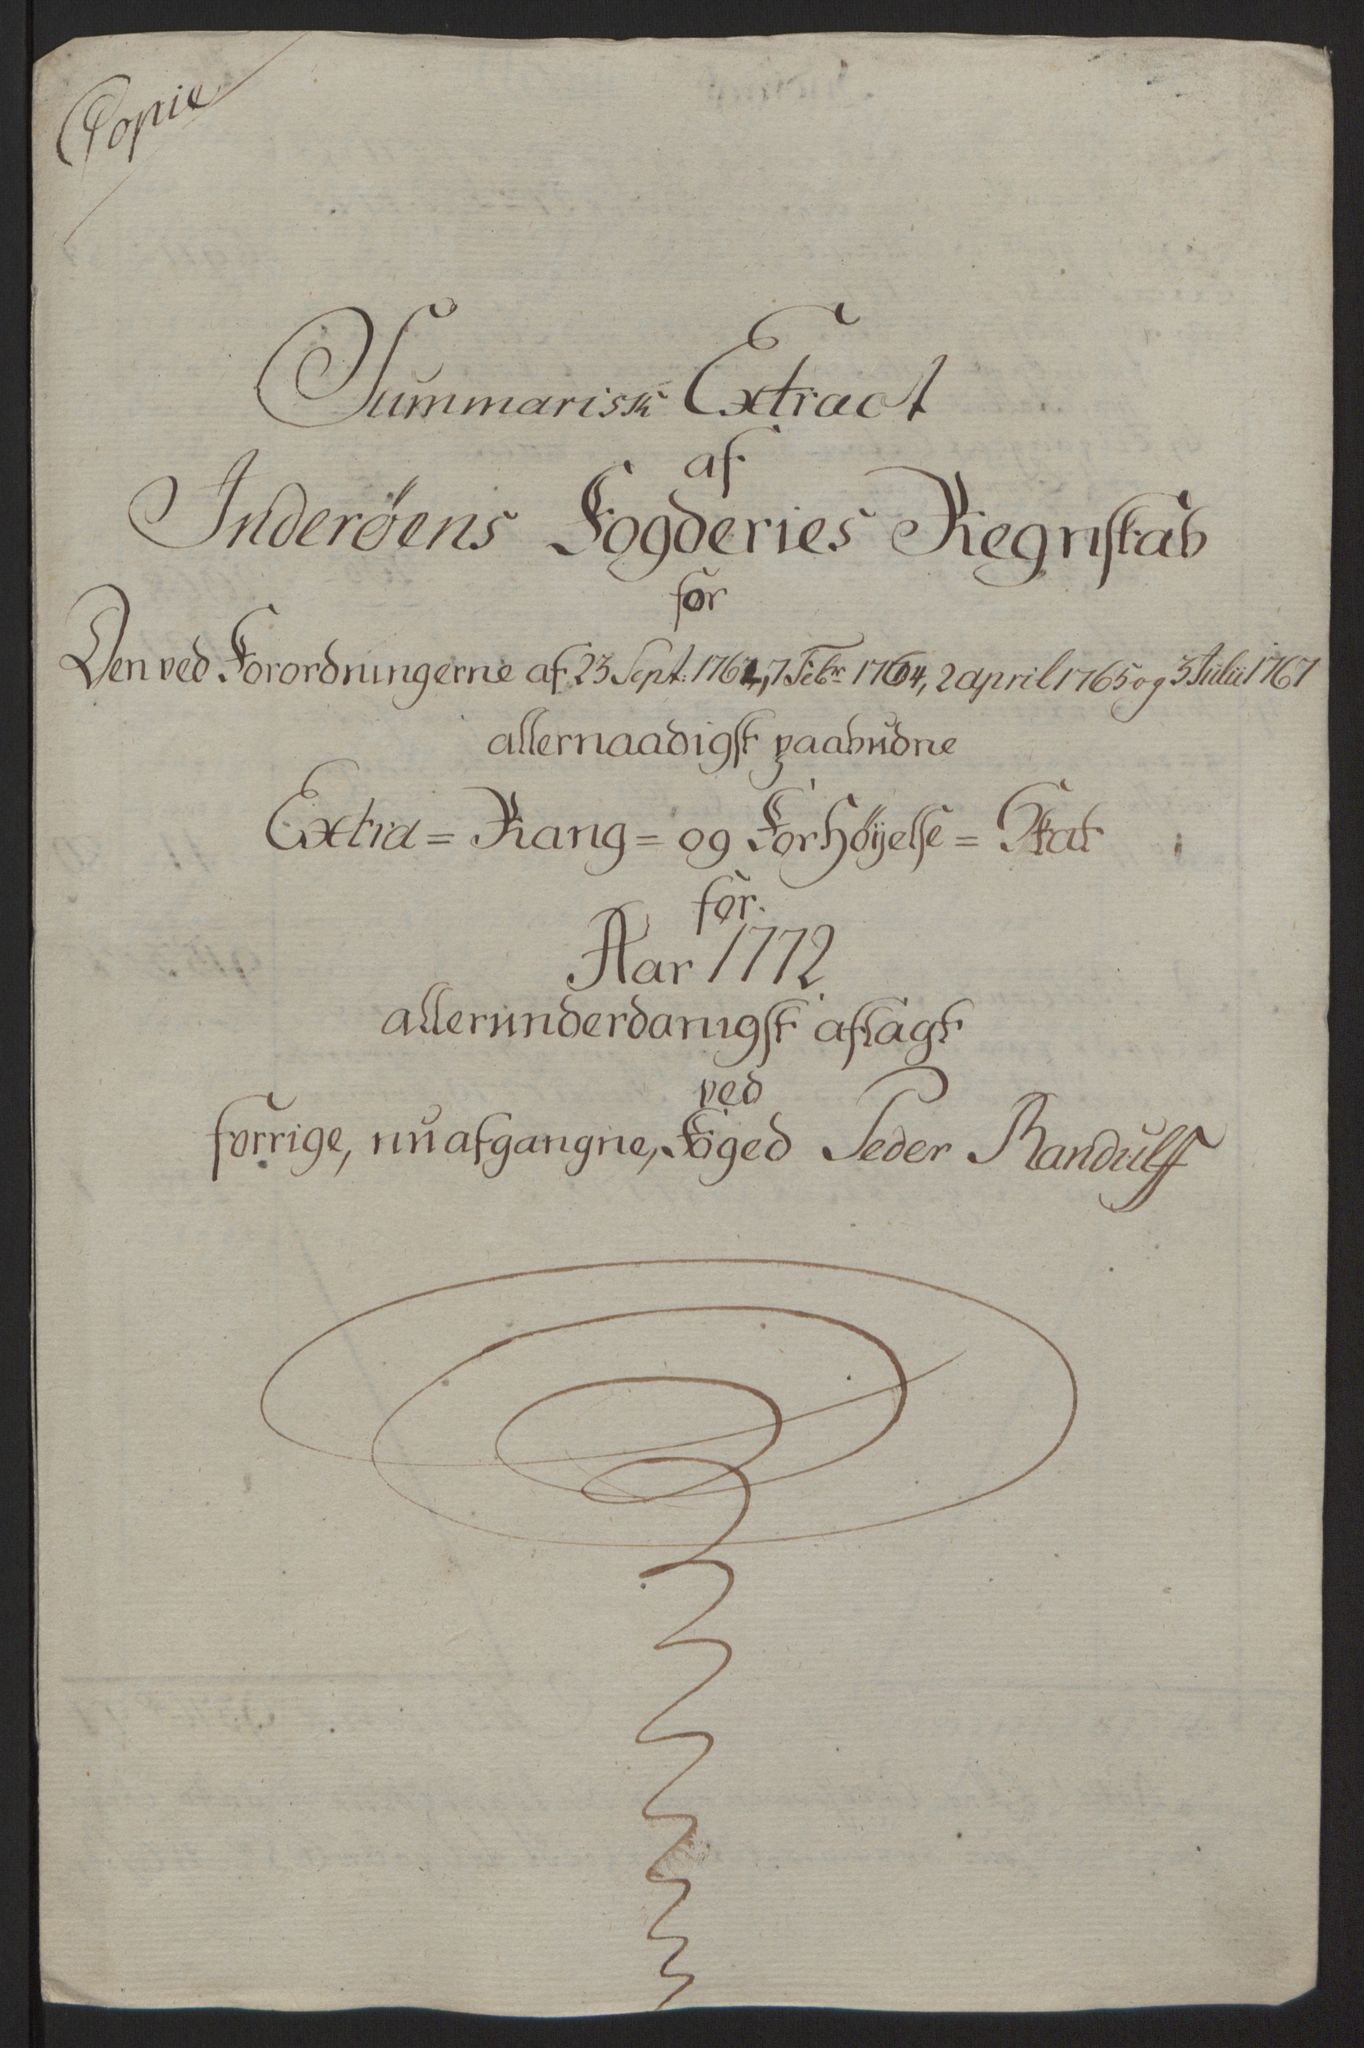 Copie
Summarisk Extract
af
Inderöens Fogderies Regnskab
for
Den ved Forordningerne af 23 Sept: 1762, 7 Febr 1764, 2 april 1765 og 3 Julii 1767
allernaadigst paabudne
Extra= Rang= og Forhöyelse= Skat
for
Aar 1772
allerunderdanigst aflagt
ved
forrige, nu afgangne, Foged Peder Randulff